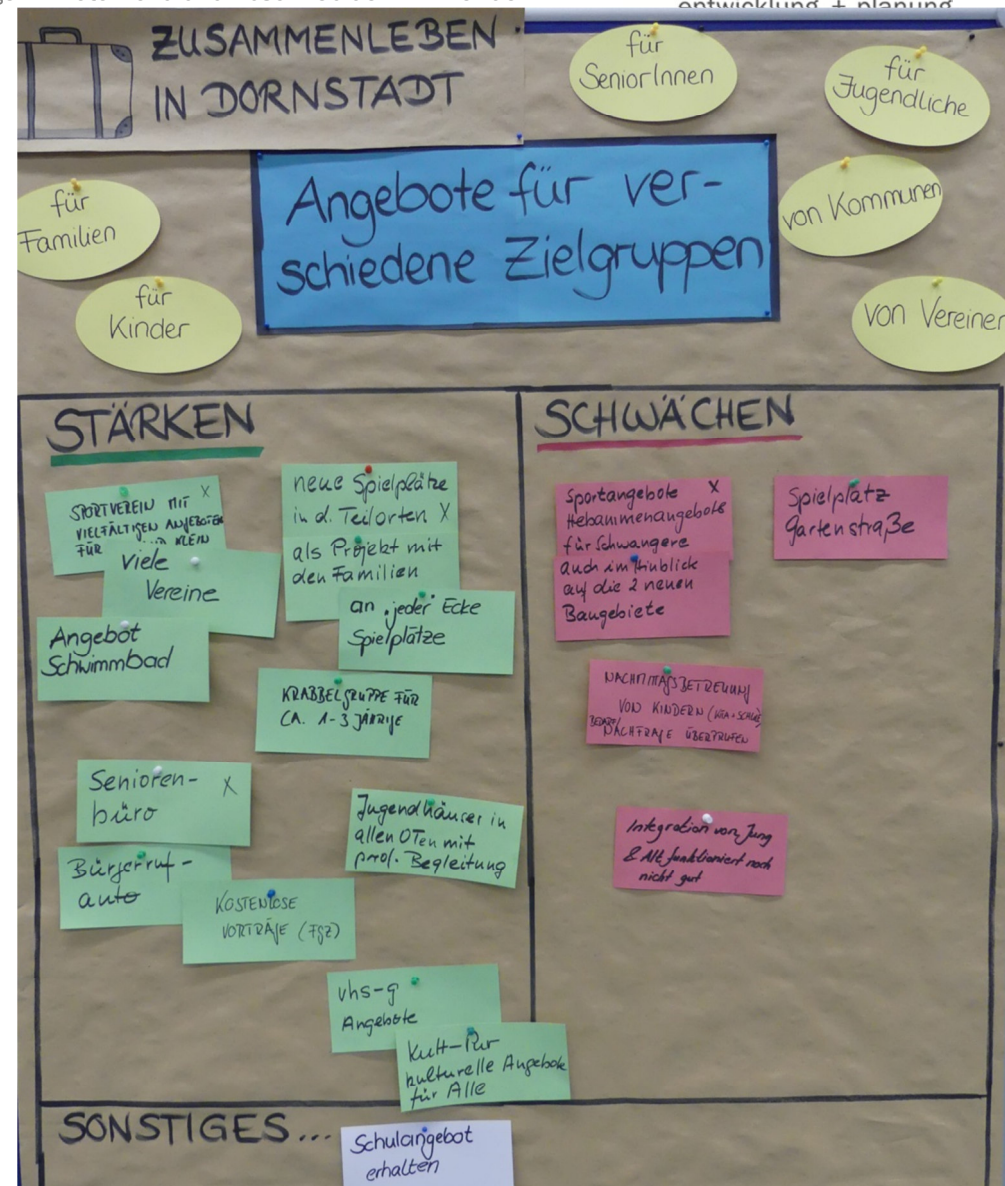 entwicklung + planung
ZUSAMMENLEBEN
IN DORNSTADT
für
SeniorInnen
für
Jugendliche
für
Familien
für
Kinder
Angebote für ver-
schiedene Zielgruppen
von Kommunen
von Vereinen
STÄRKEN
SPORTVEREIN MIT X
VIELFÄLTIGEN ANGEBOTEN
FÜR KLEIN
Viele
Vereine
Angebot
Schwimmbad
neue Spielplätze
in d. Teilorten X
als Projekt mit
den Familien
an "jeder" Ecke
Spielplätze
KRABBELGRUPPE FÜR
CA. 1-3 JÄHRIGE
Senioren- X
büro
Bürgerruf-
auto
KOSTENLOSE
VORTRÄGE (FgZ)
Jugendhäuser in
allen OTen mit
prof. Begleitung
vhs-g
Angebote
Kult-Pur
kulturelle Angebote
für Alle
SCHWÄCHEN
Sportangebote X
Hebammenangebote
für Schwangere
auch im Hinblick
auf die 2 neuen
Baugebiete
Spielplatz
Gartenstraße
NACHMITTAGSBETREUUNG
VON KINDERN (KITA + SCHULE)
BEDARF/
NACHFRAGE ÜBERPRÜFEN
Integration von Jung
& Alt funktioniert noch
nicht gut
SONSTIGES...
Schulangebot
erhalten